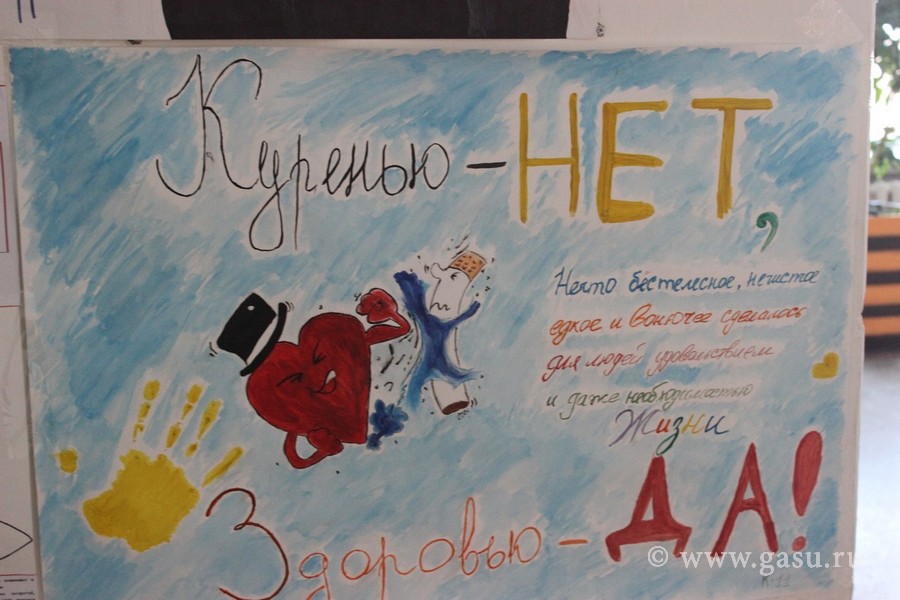 Куренью - НЕТ,
Нечто бестелесное, нечистое
едкое и вонючее сделалось
для людей удовольствием
и даже необходимостью
Жизни
Здоровью - ДА!
© www.gasu.ru